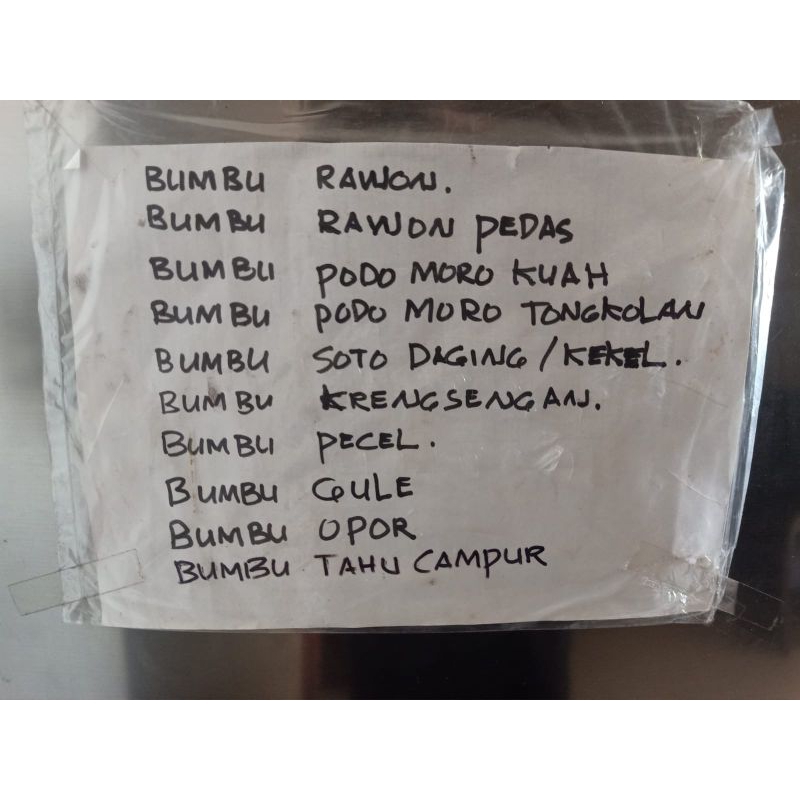 BUMBU RAWON.
BUMBU RAWON PEDAS
BUMBU PODO MORO KUAH
BUMBU PODO MORO TONGKOLAN
BUMBU SOTO DAGING / KEKEL.
BUMBU KRENGSENGAN.
BUMBU PECEL.
BUMBU GULE
BUMBU OPOR
BUMBU TAHU CAMPUR